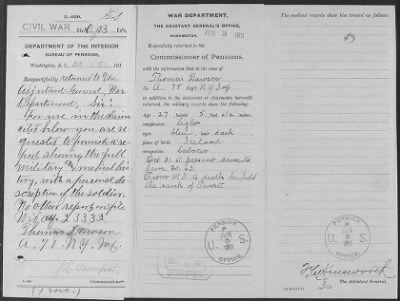 3-650.
CIVIL WAR.
DEPARTMENT OF THE INTERIOR
BUREAU OF PENSIONS,
Washington, D. C.,
Respectfully returned to the
Adjutant General, War
Department. Sir:
For use in the claim
cited below you are re-
quested to furnish a re-
port showing the full
military & medical his-
tory, with a personal de-
scription of the soldier.
No other report on file
Thomas Dawson
A. 78 N.Y. Inf.
Commissioner.
WAR DEPARTMENT,
THE ADJUTANT GENERAL'S OFFICE,
WASHINGTON,
Respectfully returned to the
Commissioner of Pensions,
with the information that in the case of
Thomas Dawson
Co. A, 78 Regt N.Y. Inf
In addition to the statement or statements
returned, the military records show that
Age 27 height 5 feet
complexion light
eyes blue hair dark
place of birth Ireland
occupation laborer
the rank of Privt
PENSION
U. S.
OFFICE.
The medical records show him treated as follows:
PENSION
U. S.
OFFICE.
The Adjutant General.